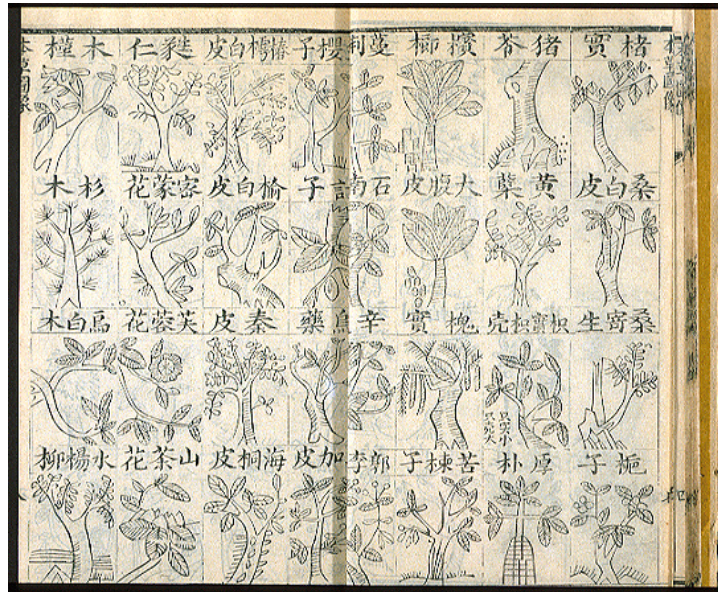 楮實 猪苓 檳榔 蔓荊 櫻子 椿樗白皮 蕤仁 木槿
桑白皮 黃蘗 大腹皮 石南 訶子 榆白皮 密蒙花 杉木
桑寄生 枳實枳壳 槐實 辛 烏藥 秦皮 芙蓉花 烏白木
梔子 厚朴 苦楝子 郭李 加皮 海桐皮 山茶花 水楊柳